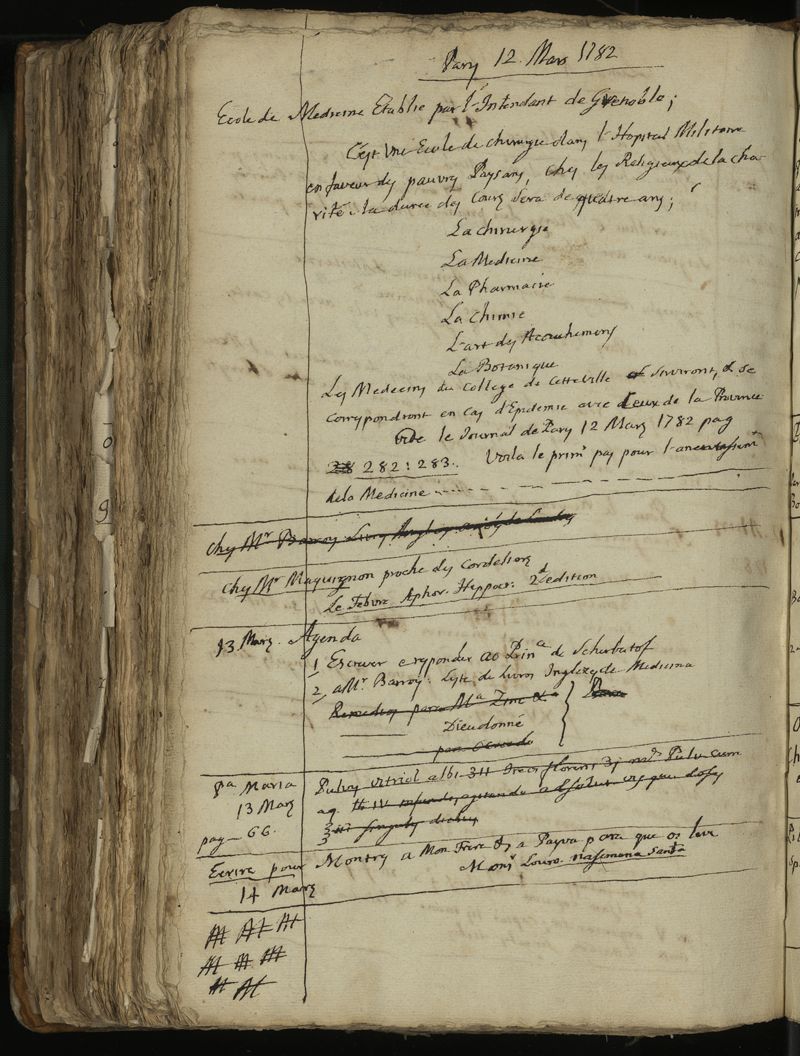 Pary 12. Mars 1782
Ecole de Medecine Etablie par l'Intendant de Grenoble;
C'est Une Ecole de chirurgie dans l'Hopital Militaire
en faveur des pauvres Paysans, chez les Religieux de la cha-
rité: la durée des Cours sera de quatre ans;
La chirurgie
La Medicine
La Pharmacie
La Chimie
L'art des Acouchemens
La Botanique
Les Medecins du College de cette Ville serviront, & se
correspondront en cas d'Epidemie avec Ceux de la Province
vide le Journal de Pary 12 Mars 1782 pag
282: 283.. Voila le prim.r pas pour l'
de la Medicine
chez Mr Barroy Livres Angloy
chez Mr Mequignon proche des Cordeliers
Le Febvre Aphor. Hippocr. 2d edition
13 Mars. Agenda
1, Escrever e responder ao Prin.e de Scherbatof
2, a Mr. Barroy. Liste de Livros Inglezes de Medicina
Remedios para M.a Zinc &.a
Dieudonné
para
P.a Maria
13 Mars
pag— 66.
Pulv. vitriol. albi. flor. Pulv. cum
aq. lb iv
singulis diebus
Ecrire pour Montry a Mon Frere & a Payva para que os leve
Mons.r Louro. nasimena Santa
14 Mars